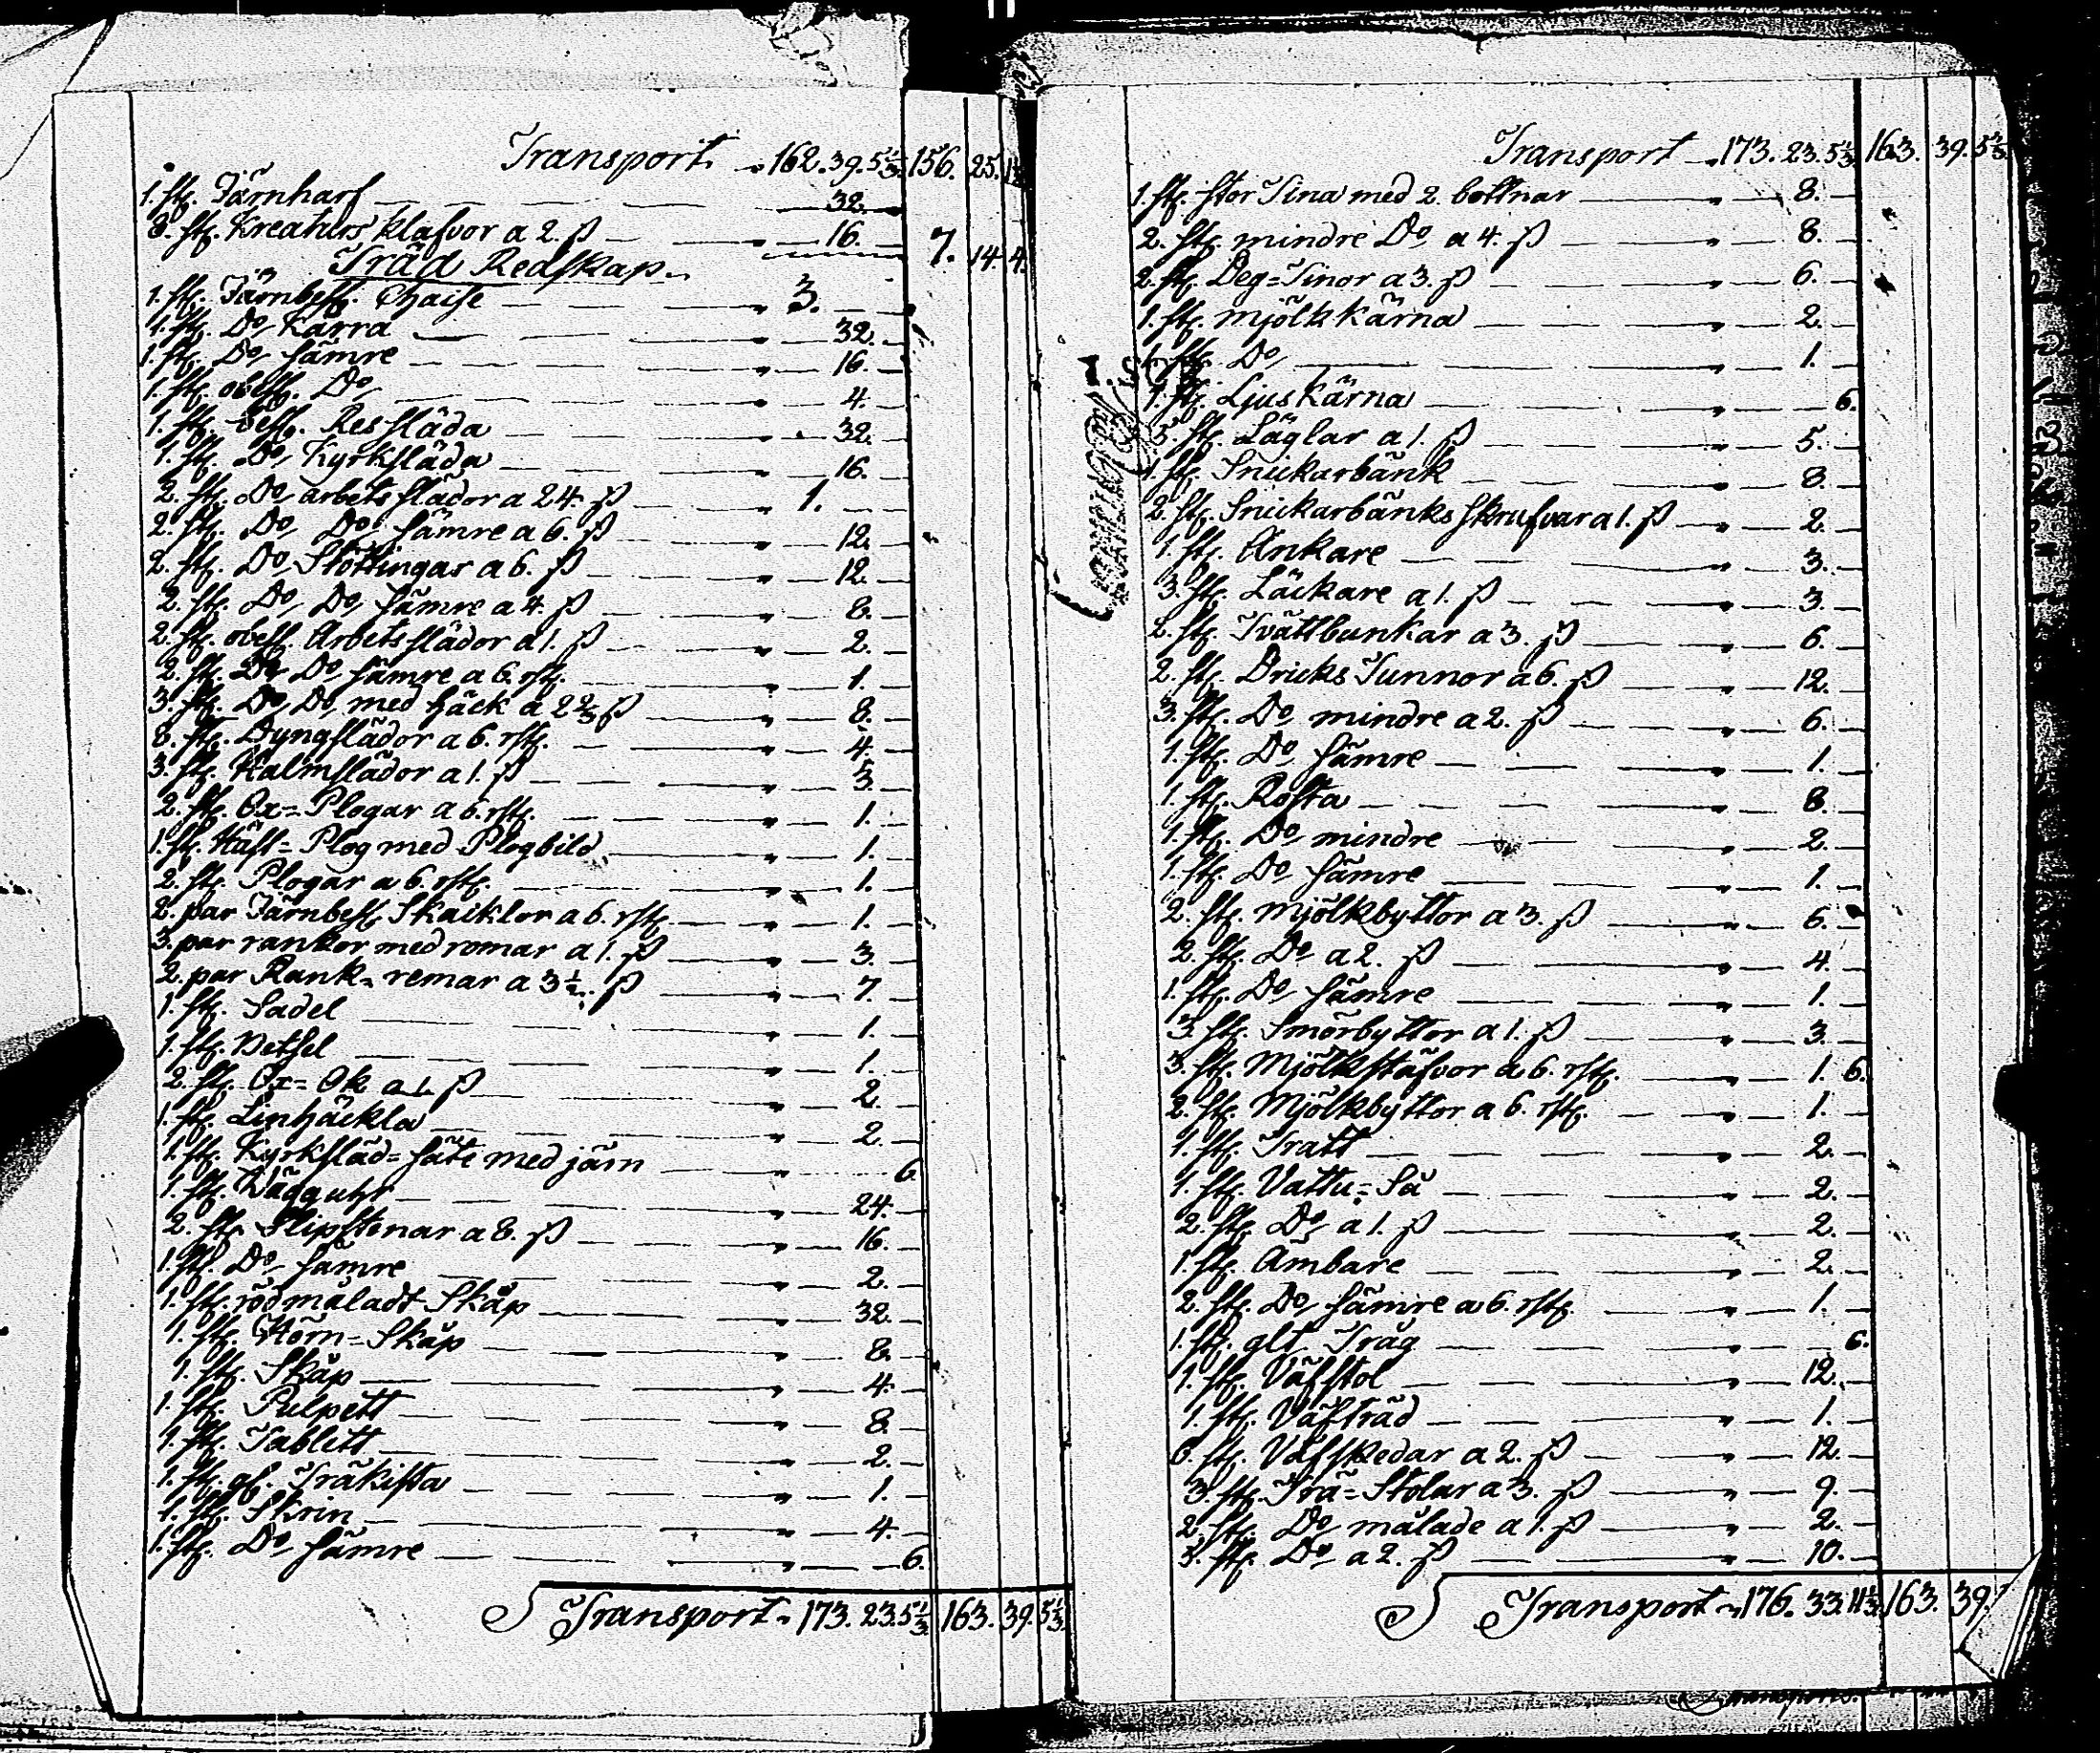 Transport „ 162. 39. 5 1/3. 156. 25. 1 1/3
1. st. Järnharf — 32. —
8. st. Kreaturs klafvor a 2. ß — 16. — 7. 14. 4.
Träd Redskap.
1. st. Järnbesl. Chaise — „ 3. —
1. st. Do Kärra — „ 32. —
1. st. Do sämre — „ 16. —
1. st. obesl. Do — „ 4. —
1. st. besl. Res släda — „ 32. —
1. st. Do Kyrksläda — „ 16. —
2. st. Do arbets slädor a 24. ß — „ 1. —
2. st. Do Do sämre a 6. ß — „ 12. —
2. st. Do Stöttingar a 6. ß — „ 12. —
2. st. Do Do sämre a 4. ß — „ 8. —
2. st. obesl. Arbets slädor a 1. ß — „ 2. —
2. st. Do Do sämre a 6. rst. — „ 1. —
3. st. Do Do med häck a 2 2/3 ß — „ 8. —
8. st. Dyngslädor a 6. rst. — „ 4. —
3. st. Halmslädor a 1. ß — „ 3. —
2. st. Ox= Plogar a 6. rst. — „ 1. —
1. st. Häst= Plog med Plogbild — „ 1. —
2. st. Plogar a 6. rst. — „ 1. —
2. par Järnbesl. Skacklor a 6. rst. — „ 1. —
3. par rankor med romar a 1. ß — „ 3. —
2. par Rank= remar a 3 1/2. ß — „ 7. —
1. st. Sadel — „ 1. —
1. st. Betsel — „ 1. —
2. st. Ox= Ok a 1. ß — „ 2. —
1. st. Linhäckla — „ 2. —
1. st. Kyrksläd= säte med järn — „ 6.
1. st. Wägguhr — „ 24. —
2. st. Slipstenar a 8. ß — „ 16. —
1. st. Do sämre — „ 2. —
1. st. rödmåladt Skåp — „ 32. —
1. st. Hörn= Skåp — „ 8. —
1. st. Skåp — „ 4. —
1. st. Pulpett — „ 8. —
1. st. Tablett — „ 2. —
1. st. gl. Träkista — „ 1. —
1. st. Skrin — „ 4. —
1. st. Do sämre — „ 6.
Transport „ 173. 23. 5 1/3. 163. 39. 5 1/3.
Transport „ 173. 23. 5 1/3. 163. 39. 5 1/3
1. st. stor Tina med 2. bottnar — „ 8. —
2. st. mindre Do a 4. ß — „ 8. —
2. st. Deg= Tinor a 3. ß — „ 6. —
1. st. mjölkkärna — „ 2. —
1. st. Do — „ 1. —
1. st. Ljuskärna — „ 6.
5. st. Läglar a 1. ß — „ 5. —
1. st. Snickarbänk — „ 8. —
2. st. Snickarbänks skrufvar a 1. ß — „ 2. —
1. st. Ankare — „ 3. —
3. st. Läckare a 1. ß — „ 3. —
2. st. Tvättbunkar a 3. ß — „ 6. —
2. st. Dricks Tunnor a 6. ß — „ 12. —
3. st. Do mindre a 2. ß — „ 6. —
1. st. Do sämre — „ 1. —
1. st. Rosta — „ 8. —
1. st. Do mindre — „ 2. —
1. st. Do sämre — „ 1. —
2. st. Mjölkbyttor a 3. ß — „ 6. —
2. st. Do a 2. ß — „ 4. —
1. st. Do sämre — „ 1. —
3. st. Smörbyttor a 1. ß — „ 3. —
3. st. Mjölkstäfvor a 6. rst. — „ 1. 6.
2. st. Mjölkbyttor a 6. rst. — „ 1. —
1. st. Tratt — „ 2. —
1. st. Vattu= Så — „ 2. —
2. st. Do a 1. ß — „ 2. —
1. st. Ämbare — „ 2. —
2. st. Do sämre a 6. rst. — „ 1. —
1. st. glt Tråg — „ 6.
1. st. Väfstol — „ 12. —
1. st. Väfträd — „ 1. —
6. st. Väfskedar a 2. ß — „ 12. —
3. st. Trä= Stolar a 3. ß — „ 9. —
2. st. Do målade a 1. ß — „ 2. —
5. st. Do a 2. ß — „ 10. —
Transport „ 176. 33. 11 1/3. 163. 39.